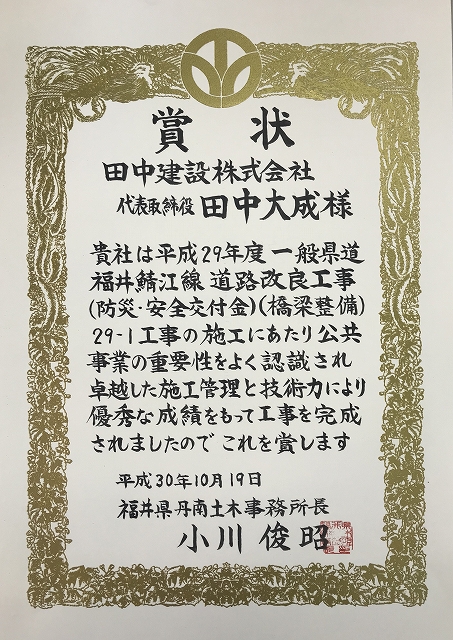 賞状
田中建設株式会社
代表取締役 田中大成様
貴社は平成29年度 一般県道
福井鯖江線 道路改良工事
(防災・安全交付金)(橋梁整備)
29-1工事の施工にあたり公共
事業の重要性をよく認識され
卓越した施工管理と技術力により
優秀な成績をもって工事を完成
されましたので これを賞します
平成30年10月19日
福井県丹南土木事務所長
小川 俊昭